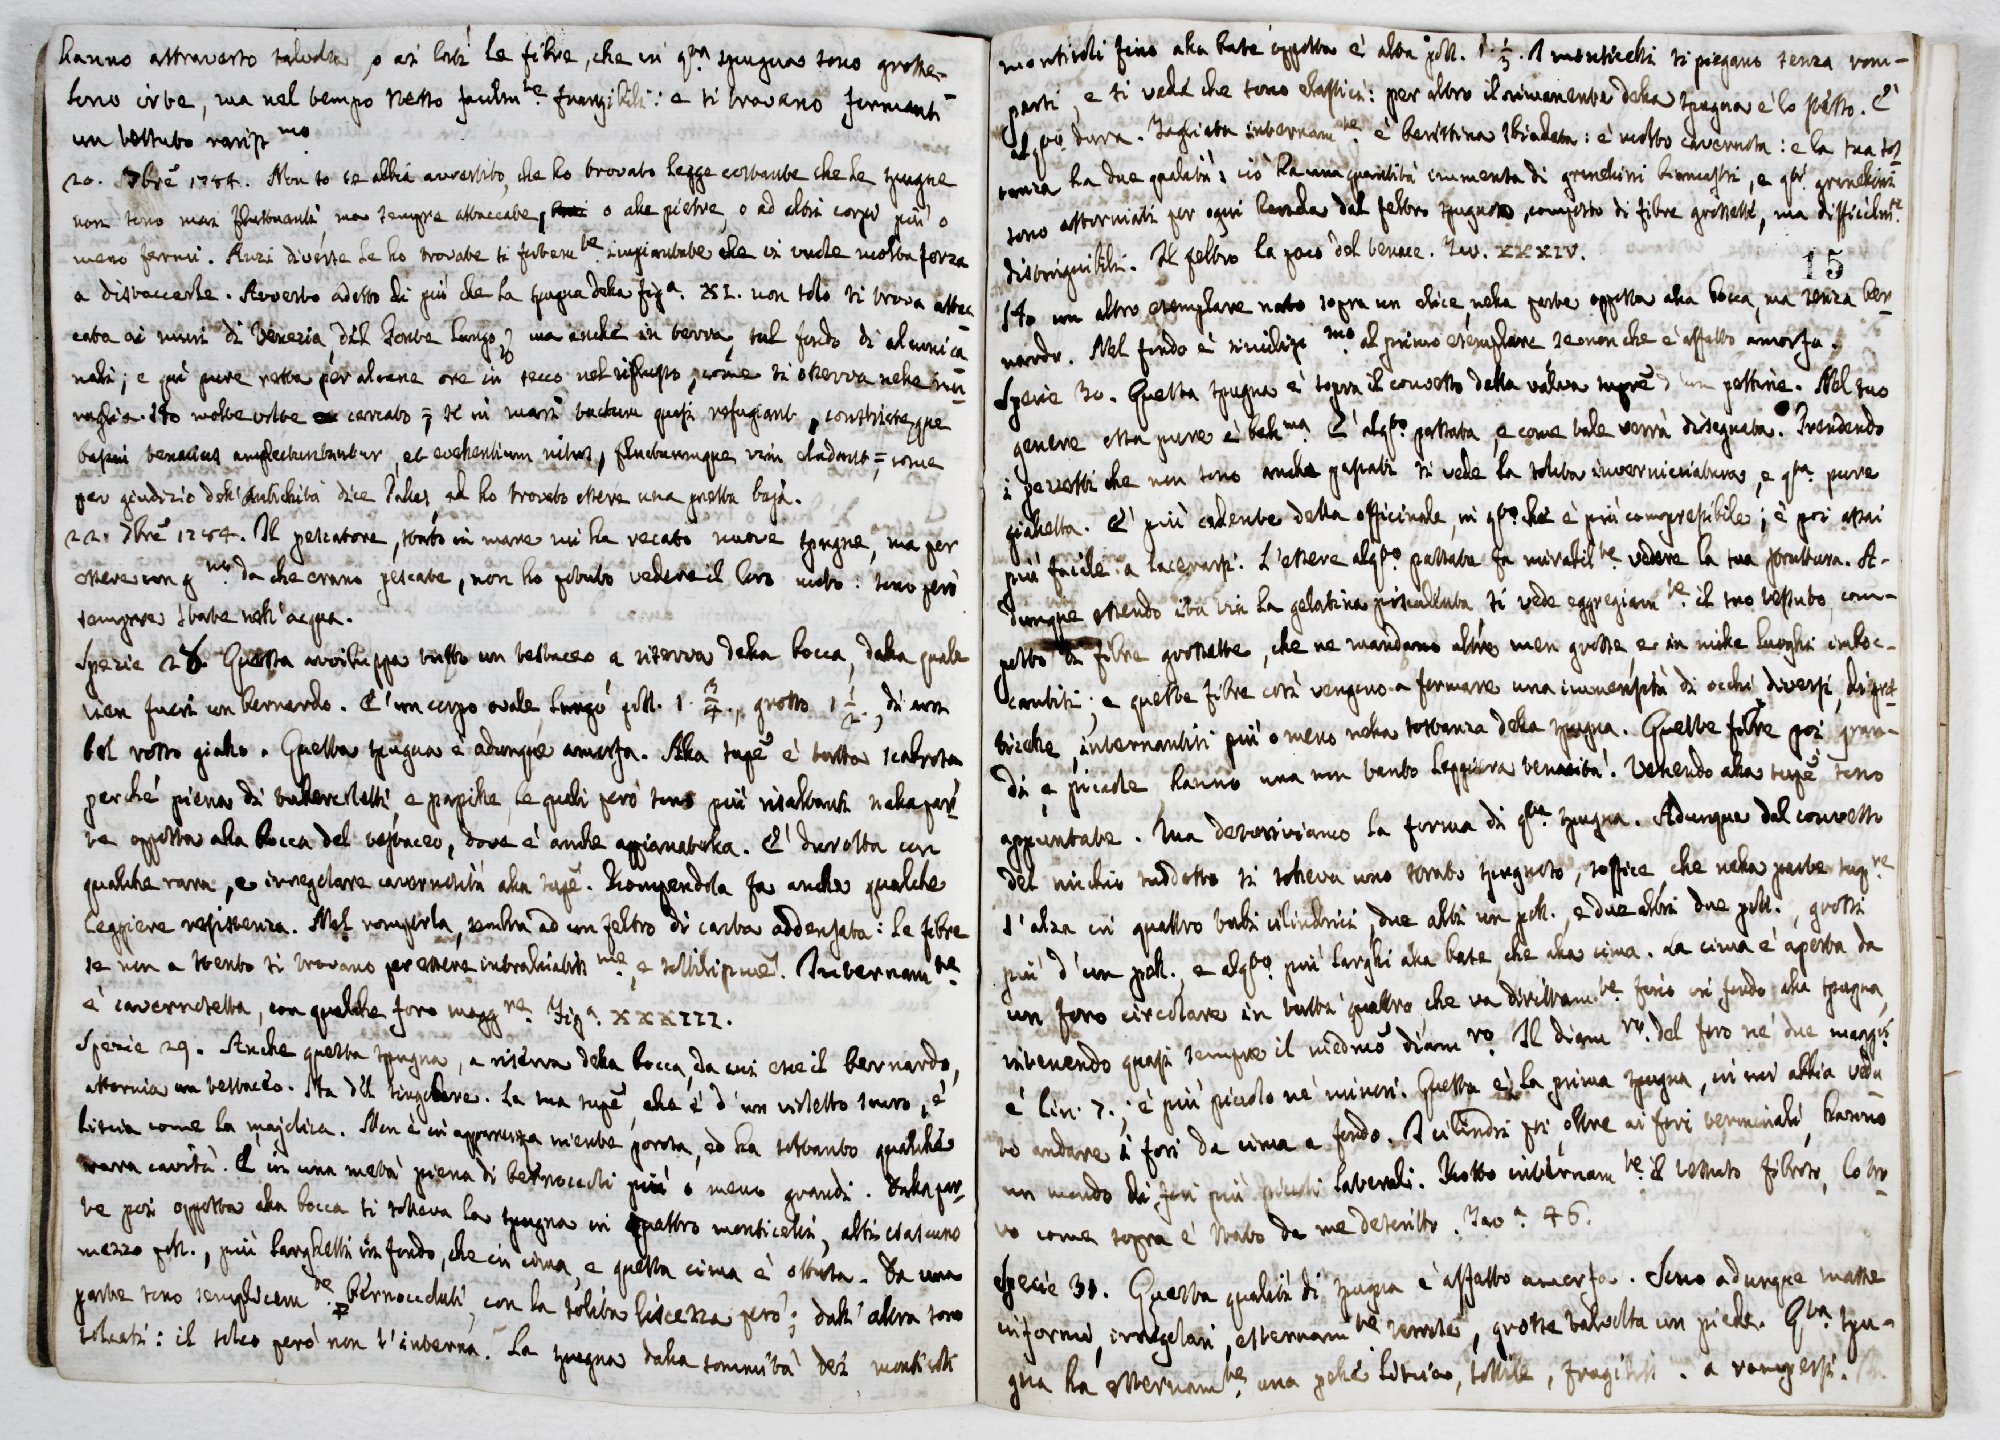 hanno attraverso talvolta, o ai lati le fibre, che in qta spugna sono grosse,
sono irte, ma nel tempo stesso facilmte frangibili: e si trovano formanti
un tessuto rariss mo
20. 7bre 1784. Non so se abbia avvertito, che ho trovato legge costante che le spugne
non sono mai fluttuanti, ma sempre attaccate, o alle pietre, o ad altri corpi più o
meno fermi. Anzi diverse le ho trovate sì forteme te impiantate che ci vuole molta forza
a distaccarle. Avverto adesso di più che la spugna della fig a. XI. non solo si trova attac=
cata ai muri di Venezia, dil Ponte Lungo, ma anche in terra, sul fondo di alcuni ca
nali; e qui pure resta per alcune ore in secco nel riflusso, come si osserva nelle mu=
raglie. Ho molte volte cercato = se in mari tactum quasi refugiant, constrictaeque
corpori tenacius amplectuntur, et evehentium nitus, fluctuumque vim eludant = come
per giudizio dell'antichità dice Pallas, ed ho trovato essere una pretta baja.
22. 7bre 1784. Il pescatore, stato in mare mi ha recato nuove spugne, ma per
essere un g no da che erano pescate, non ho potuto vedere il loro moto: sono però
sempre state nell'acqua.
Spezie 28. Questa avviluppa tutto un testaceo a riserva della bocca, dalla quale
vien fuori un bernardo. E' un corpo ovale, lungo poll. 1 3/4., grosso 1 1/2., di un
bel rosso giallo. Questa spugna è adunque amorfa. Alla supe è tutta scabrosa
perché piena di tubercoletti, e papille, le quali però sono più risaltanti nella par=
te opposta alla bocca del testaceo, dove è anche appianatella. E' durotta con
qualche rara, e irregolare cavernosità alla supe. Rompendola fa anche qualche
leggiere resistenza. Nel romperla, sembra ad un feltro di carta addensata: le fibre
se non a stento si trovano per essere intralciatiss me, e sottilissme. Internam te
è cavernosetta, con qualche foro magg re. Fig a. XXXIII.
Spezie 29. Anche questa spugna, a riserva della bocca, da cui esce il bernardo,
attornia un testaceo. Ha del singolare. La sua supe, che è d'un violetto scuro, è
liscia come la majolica. Non è in apparenza niente porosa, ed ha soltanto qualche
rara cavità. E' in una metà piena di bernoccoli più o meno grandi. Dalla par=
te poi opposta alla bocca si solleva la spugna in quattro monticelli, alti ciascuno
mezzo poll., più larghetti in fondo, che in cima, e questa cima è ottusa. Da una
parte sono semplicem te bernoccoluti, con la solita liscezza però; dall'altra sono
solcati: il solco però non s'interna. La spugna dalla sommità dei monticoli
monticoli fino alla base opposta è alta poll. 1 1/3. I monticelli si piegano senza rom=
persi, e si vede che sono elastici: per altro il rimanente della spugna è lo stesso. E'
alqto dura. Tagliata internam te è berettina sbiadata: è molto cavernosa: e la sua sos=
tanza ha due qualità: ciò ha una quantità immensa di granellini biancastri, e qti granellini
sono attorniati per ogni banda dal feltro spugnoso, composto di fibre grossette, ma difficilmte
distinguibili. Il feltro ha poco del tenace. Tav. XXXIV.
15
Ho un altro esemplare nato sopra un elice, nella parte opposta alla bocca, ma senza ber
nardo. Nel fondo è simillis mo al primo esemplare, se non che è affatto amorfa.
Spezie 30. Questa spugna è sopra il convesso della valva supre d'un pettine. Nel suo
genere essa pure è bell ma. E' alqto passata, e come tale verrà disegnata. Prendendo
i pezzetti che non sono anche passati si vede la solita inverniciatura, e qta pure
gialletta. E' più cedente della officinale, in qto che è più compressibile; è poi assai
più facile a lacerarsi. L'essere alqto passata fa mirabil te vedere la sua struttura. A-
dunque essendo ita via la gelatina piscaliuta si vede eggregiam te il suo tessuto, com-
posto di fibre grossette, che ne mandano altre men grosse, e in mille luoghi imboc-
cantisi; e queste fibre così vengono a formare una immensità di occhi diversi, bizzar
bische, internantisi più o meno nella sostanza della spugna. Queste fibre poi gran-
di e piccole hanno una non tanto leggiera tenacità. Venendo alla supe sono
appuntate. Ma descriviamo la forma di qta spugna. Adunque dal convesso
del nicchio suddetto si solleva uno strato spugnoso, soffice che nella parte sup re
s'alza in quattro tubi cilindrici, due alti un poll., e due altri due poll., grossi
più d'un poll., e alqto più larghi alla base, che alla cima. La cima è aperta da
un foro circolare in tutti quattro che va dirittam te fino in fondo alla spugna,
ritenendo quasi sempre il medmo diam ro. Il diam ro. del foro ne' due maggri
è lin. 7.; è più piccolo ne' minori. Questa è la prima spugna, in cui abbia vedu
to andare i fori da cima a fondo. I cilindri poi, oltre ai fori terminali, hanno
un mondo di fori più piccoli laterali. Rotto internam te il tessuto fibroso, lo tro
vo come sopra è stato da me descritto. Tav a. 46.
Spezie 31. Questa qualità di spugna è affatto amorfa. Sono adunque masse
informi, irregolari, esternam te, grosse talvolta un piede. Qta spu-
gna ha esternam te una pelle liscia, sottile, fragilissi. a rompersi.